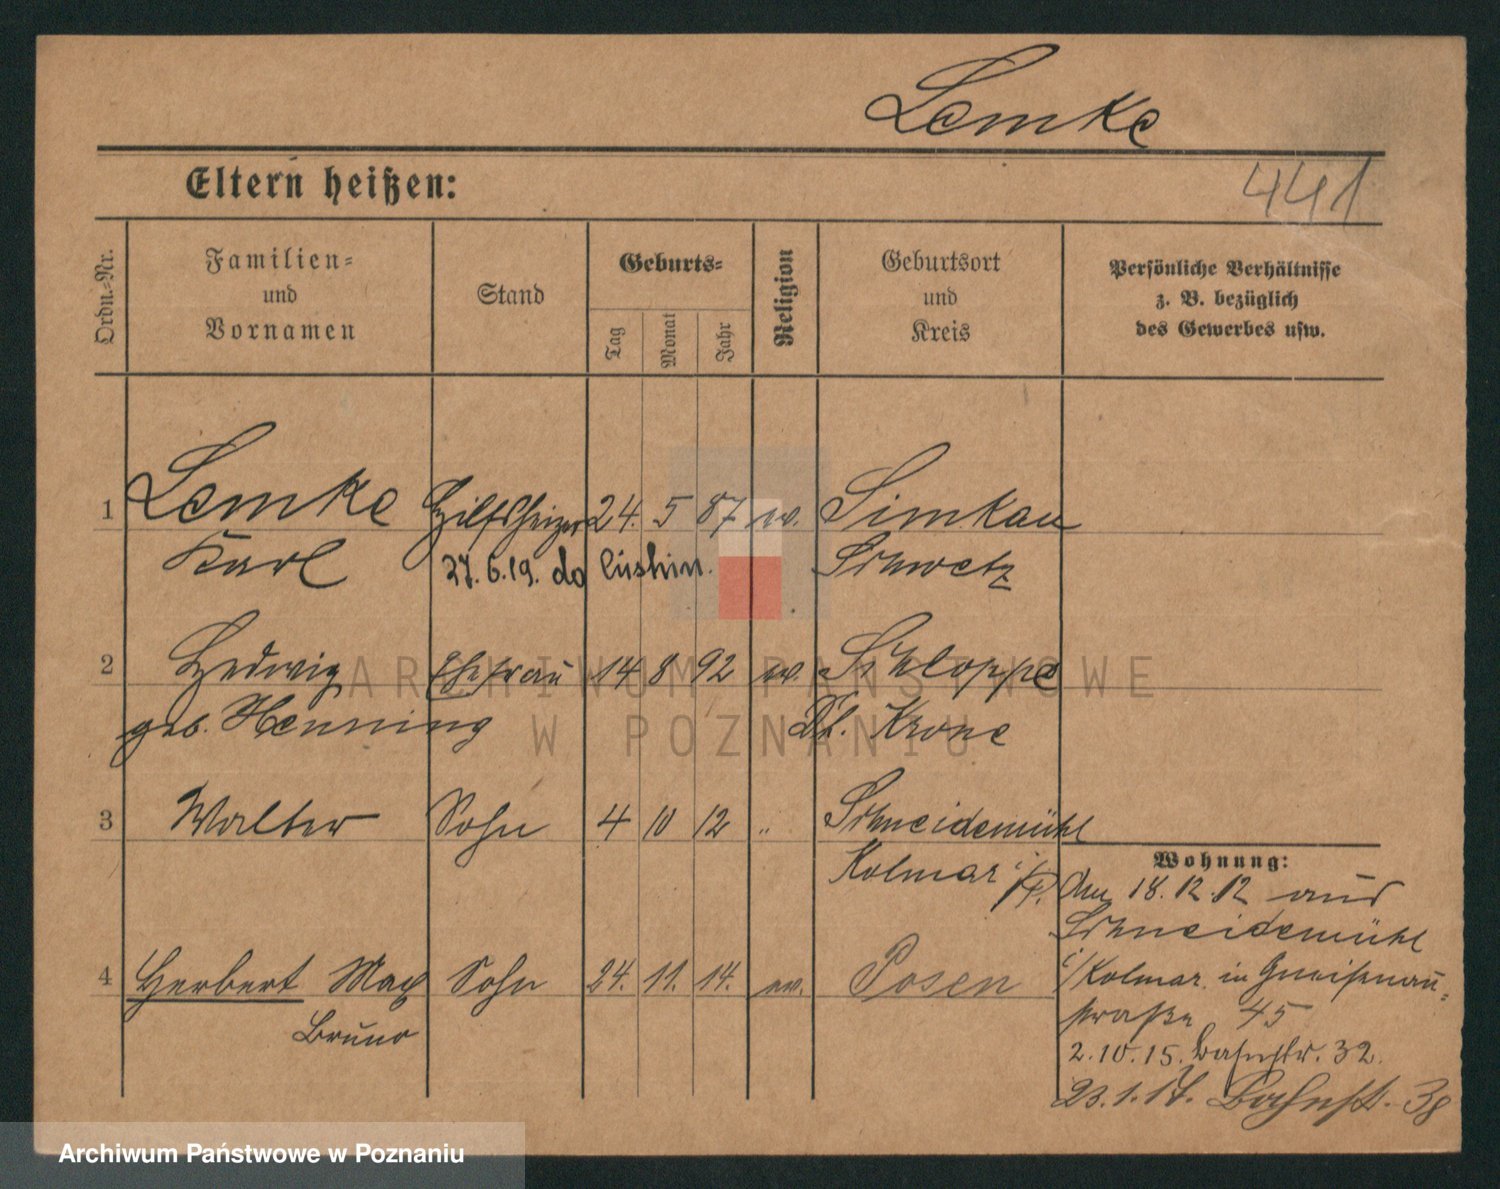 Lemke
Eltern heißen:
441
Ordn.=Nr.
Familien=
und
Vornamen
Stand
Geburts=
Tag
Monat
Jahr
Religion
Geburtsort
und
Kreis
Persönliche Verhältnisse
z. B. bezüglich
des Gewerbes usw.
1 Lemke Hilfsheizer 24. 5 87 ev. Simkau
Karl 27. 6. 19. do Schwetz
2 Hedwig Ehefrau 14 8 92 ev. Schloppe
geb. Henning Dt. Krone
3 Walter Sohn 4 10 12 " Schneidemühl
Kolmar i/P.
Wohnung:
den 18. 12. 12 aus
Schneidemühl
i/Kolmar in Gneisenau=
straße 45
2. 10. 15. Bahnstr. 32.
23. 1. 17. Bahnst. 38
4 Herbert Max Sohn 24. 11. 14. ev. Posen
Bruno
ARCHIWUM PAŃSTWOWE
W POZNANIU
Archiwum Państwowe w Poznaniu